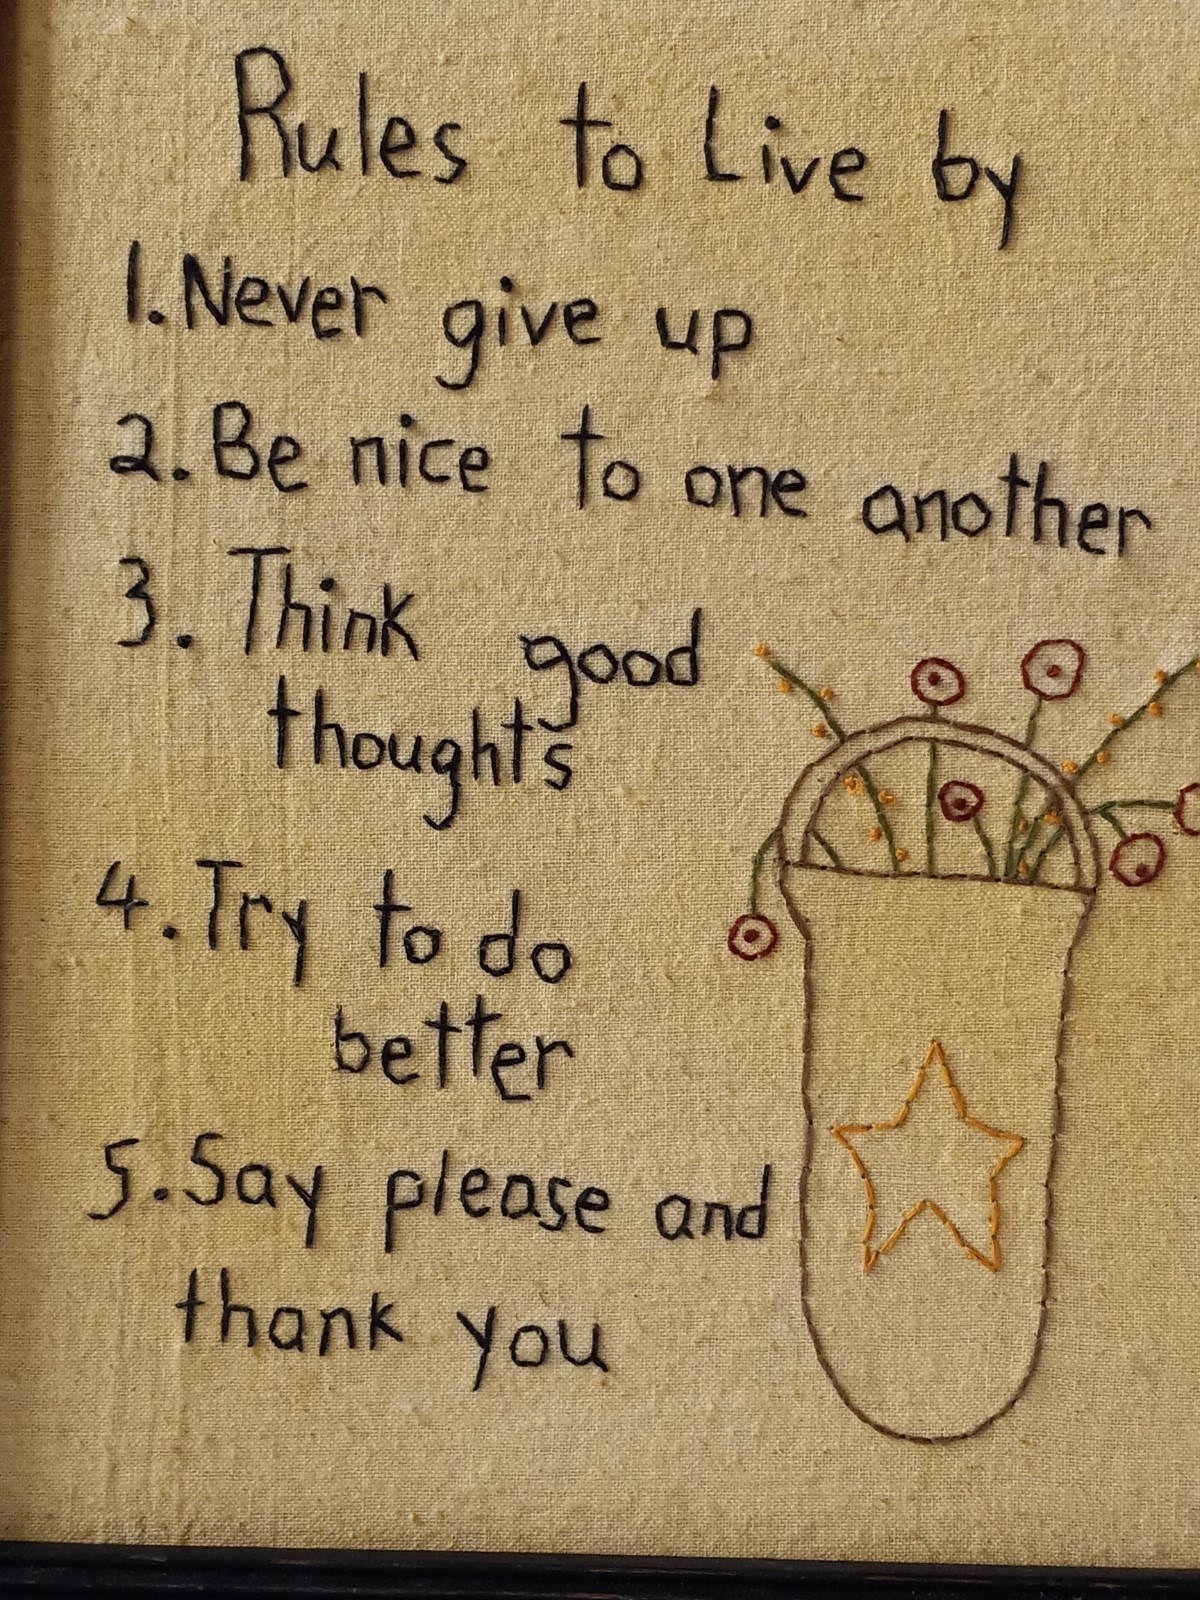 Rules to Live by
1. Never give up
2. Be nice to one another
3. Think good
thoughts
4. Try to do
better
5. Say please and
thank you